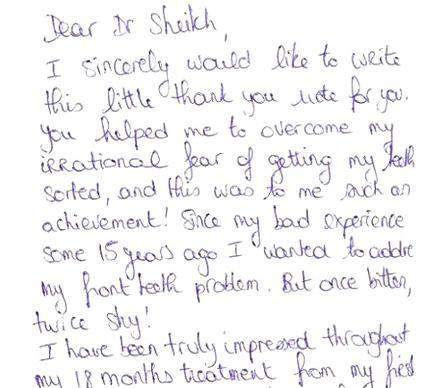 Dear Dr Sheikh,
I sincerely would like to write
this little thank you note for you.
You helped me to overcome my
irrational fear of getting my teeth
sorted, and this was to me such an
achievement! Since my bad experience
some 15 years ago I wanted to addre
my front teeth problem. But once bitten,
twice shy!
I have been truly impressed throughout
my 18 months treatment from my first